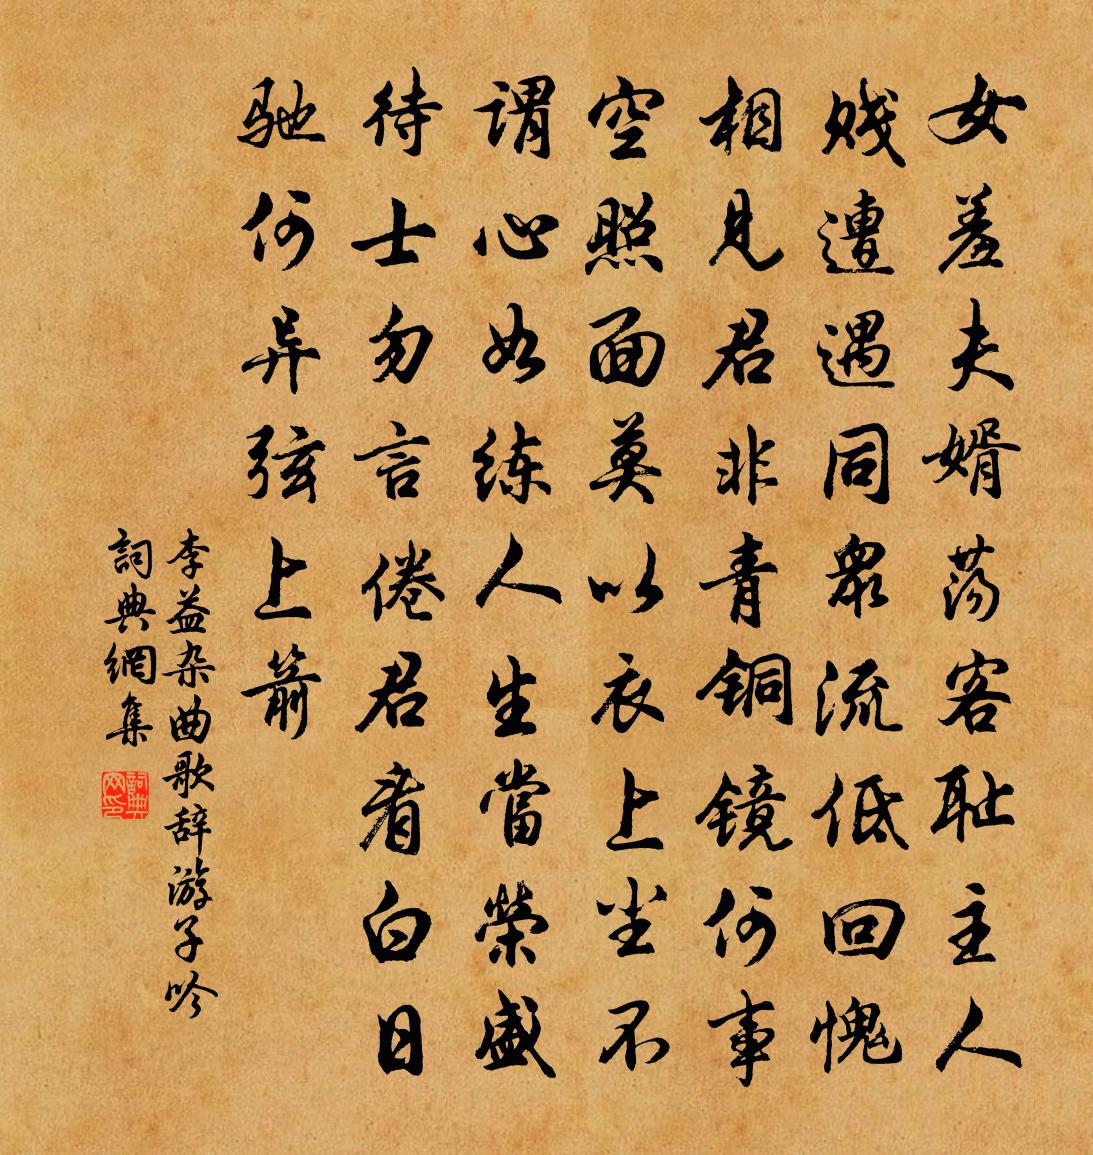 女羞夫婿荡客耻主人
贱遭遇同眾流低回愧
相见君非青铜镜何事
空照面莫以衣上尘不
谓心如练人生當榮盛
待士勿言倦君看白日
驰何异弦上箭
李益杂曲歌辞游子吟
詞典網集
詞典网印